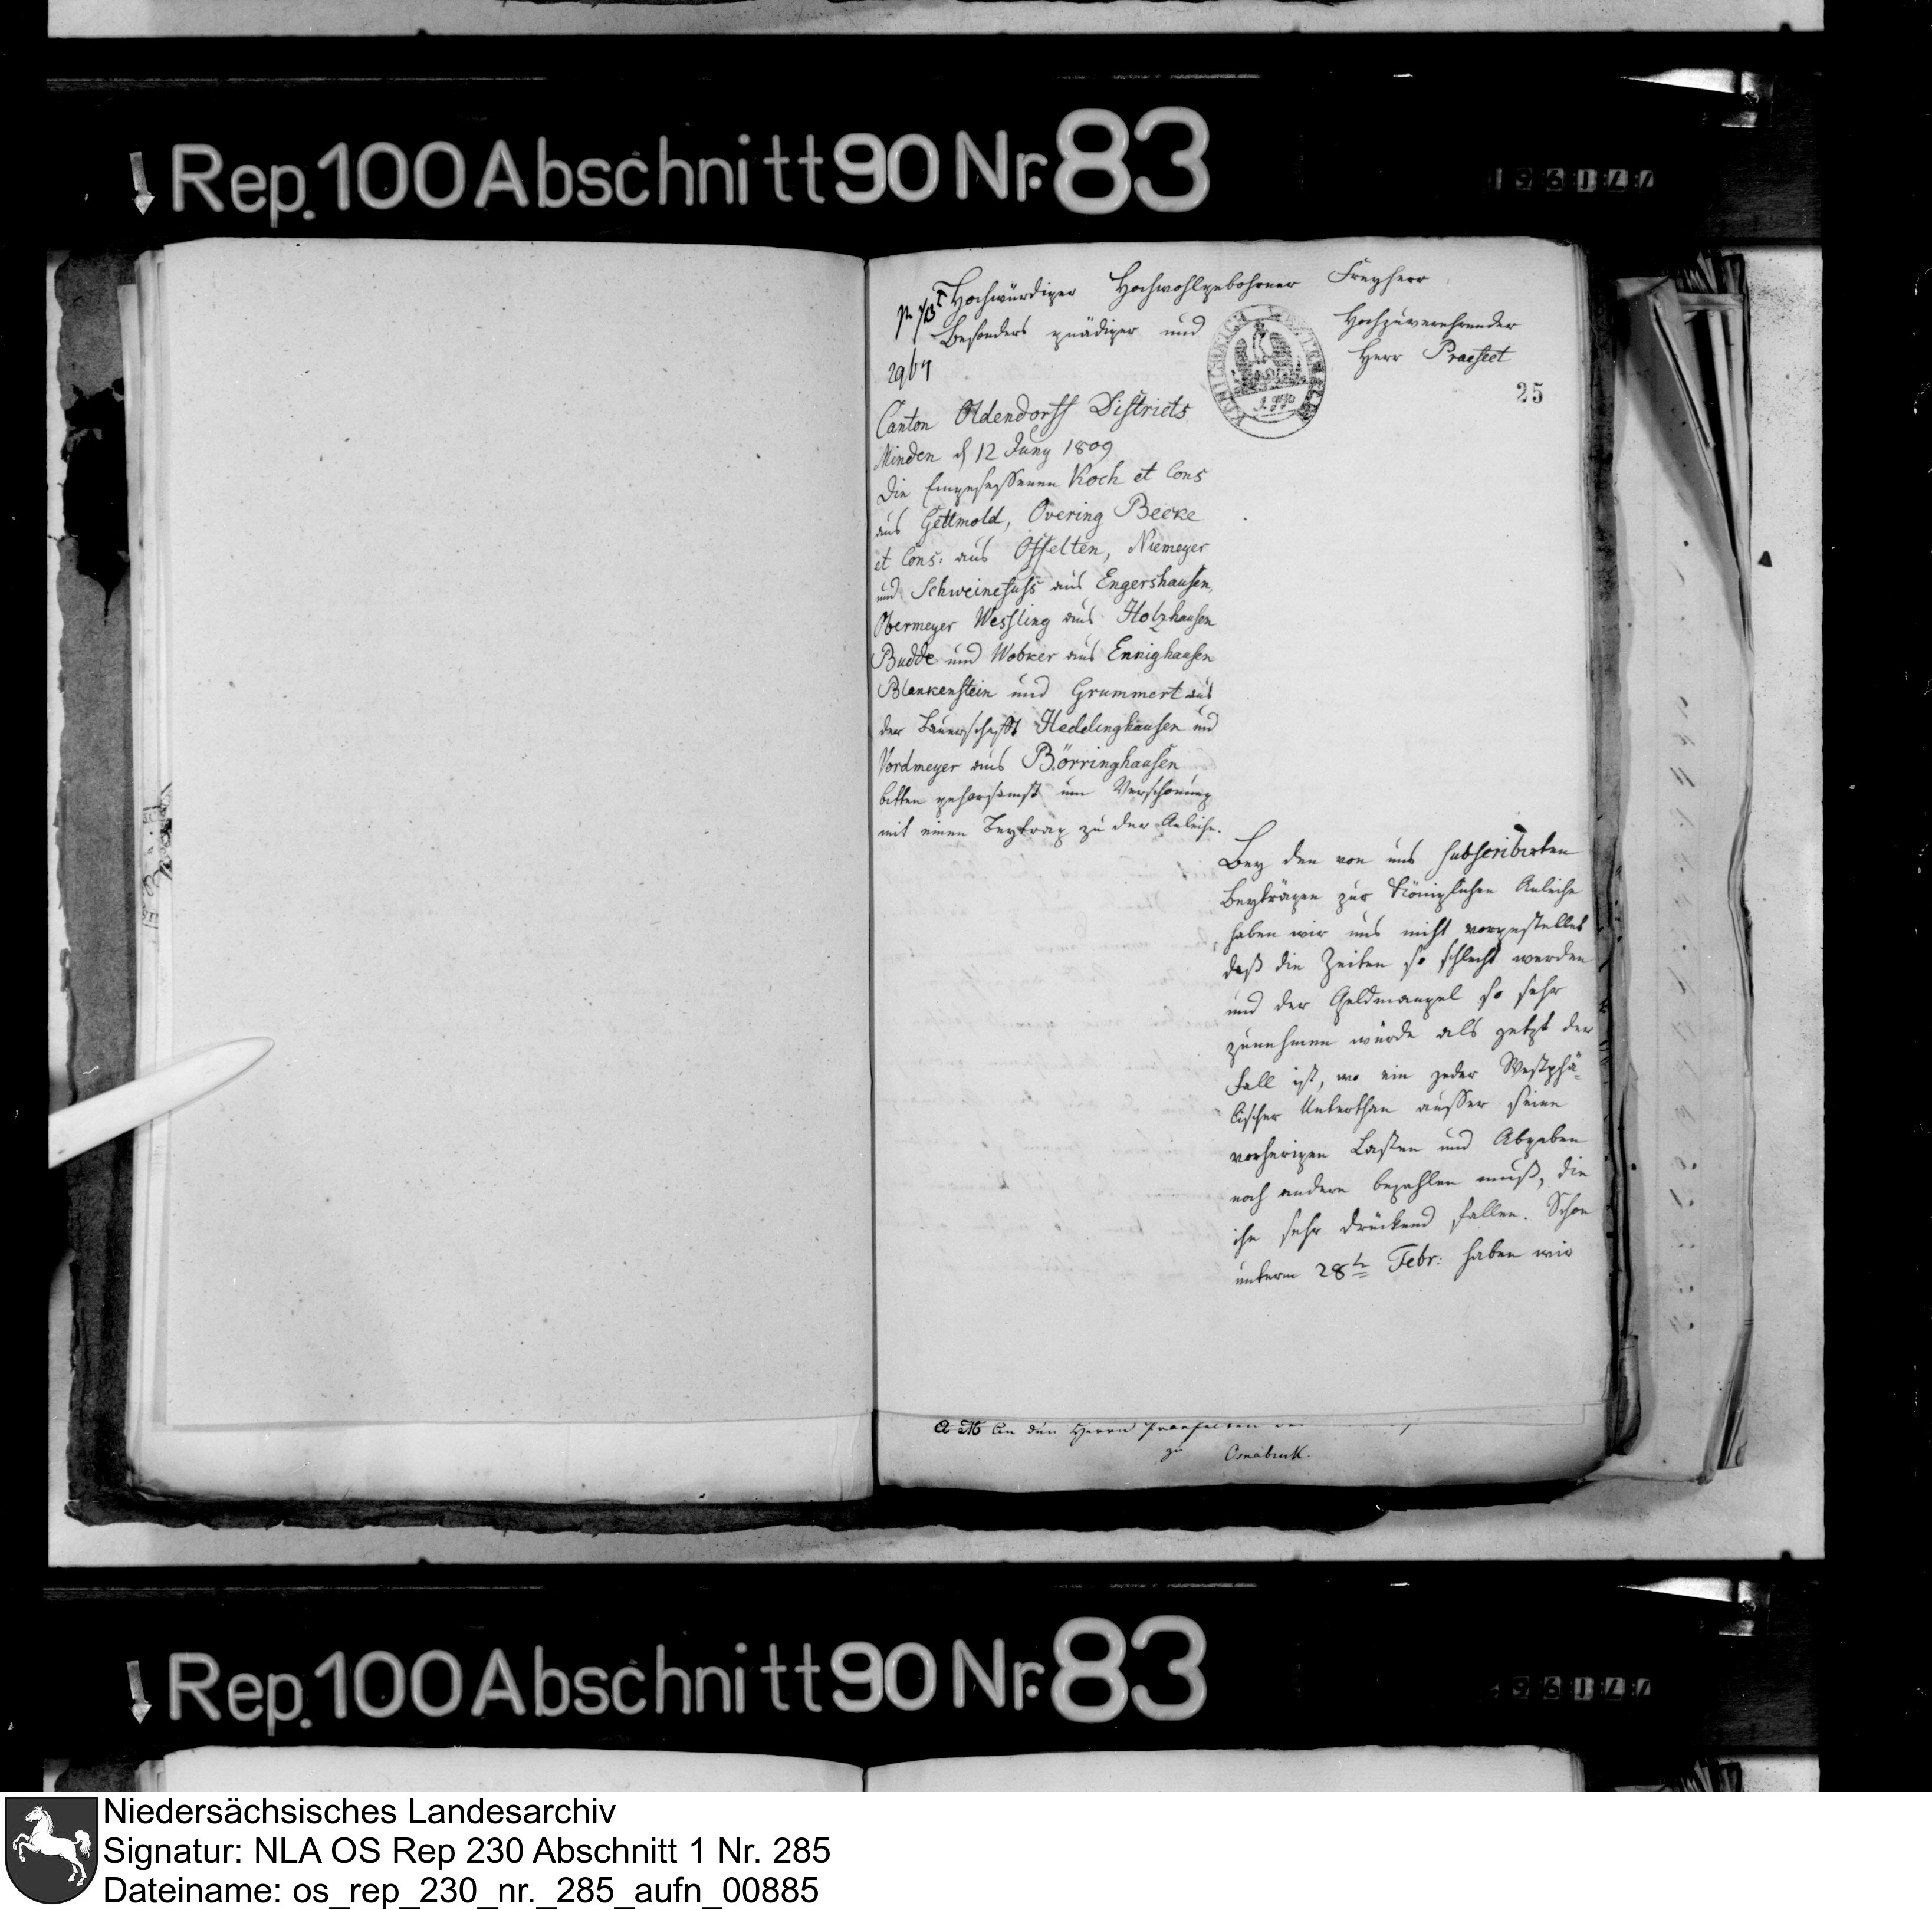 Rep. 100 Abschnitt 90 Nr. 83
Hochwürdiger Hochwohlgebohrner Freyherr
Besonders gnädiger und Hochzuverehrender
Herr Praefect
2964
25
Canton Oldendorff Districts
Minden d 12 Juny 1809
Die Eingesessenen Koch et Cons
aus Gettmold, Overing Becke
et Cons: aus Offelten, Niemeyer
und Schweinefuss aus Engershausen,
Obermeyer Wessling aus Holzhausen
Budde und Wobker aus Ennighausen
Blankenstein und Grummert aus
der Bauerschafft Heddinghausen und
Nordmeyer aus Börringhausen
bitten gehorsamst um Verschonung
mit einen Beytrag zu der Anleihe.
Bey den von uns subscribirten
Beyträgen zur Königlichen Anleihe
haben wir uns nicht vorgestellet
daß die Zeiten so schlecht werden
und der Geldmangel so sehr
zunehmen würde als jetzt der
Fall ist, wo ein jeder Westphä-
lischer Unterthan ausser seine
vorherigen Lasten und Abgaben
noch andere bezahlen muß, die
ihn sehr drückend fallen. Schon
unterm 28t Febr: haben wir
An den Herrn Praefecten
zu Osnabruk.
Rep. 100 Abschnitt 90 Nr. 83
Niedersächsisches Landesarchiv
Signatur: NLA OS Rep 230 Abschnitt 1 Nr. 285
Dateiname: os_rep_230_nr._285_aufn_00885